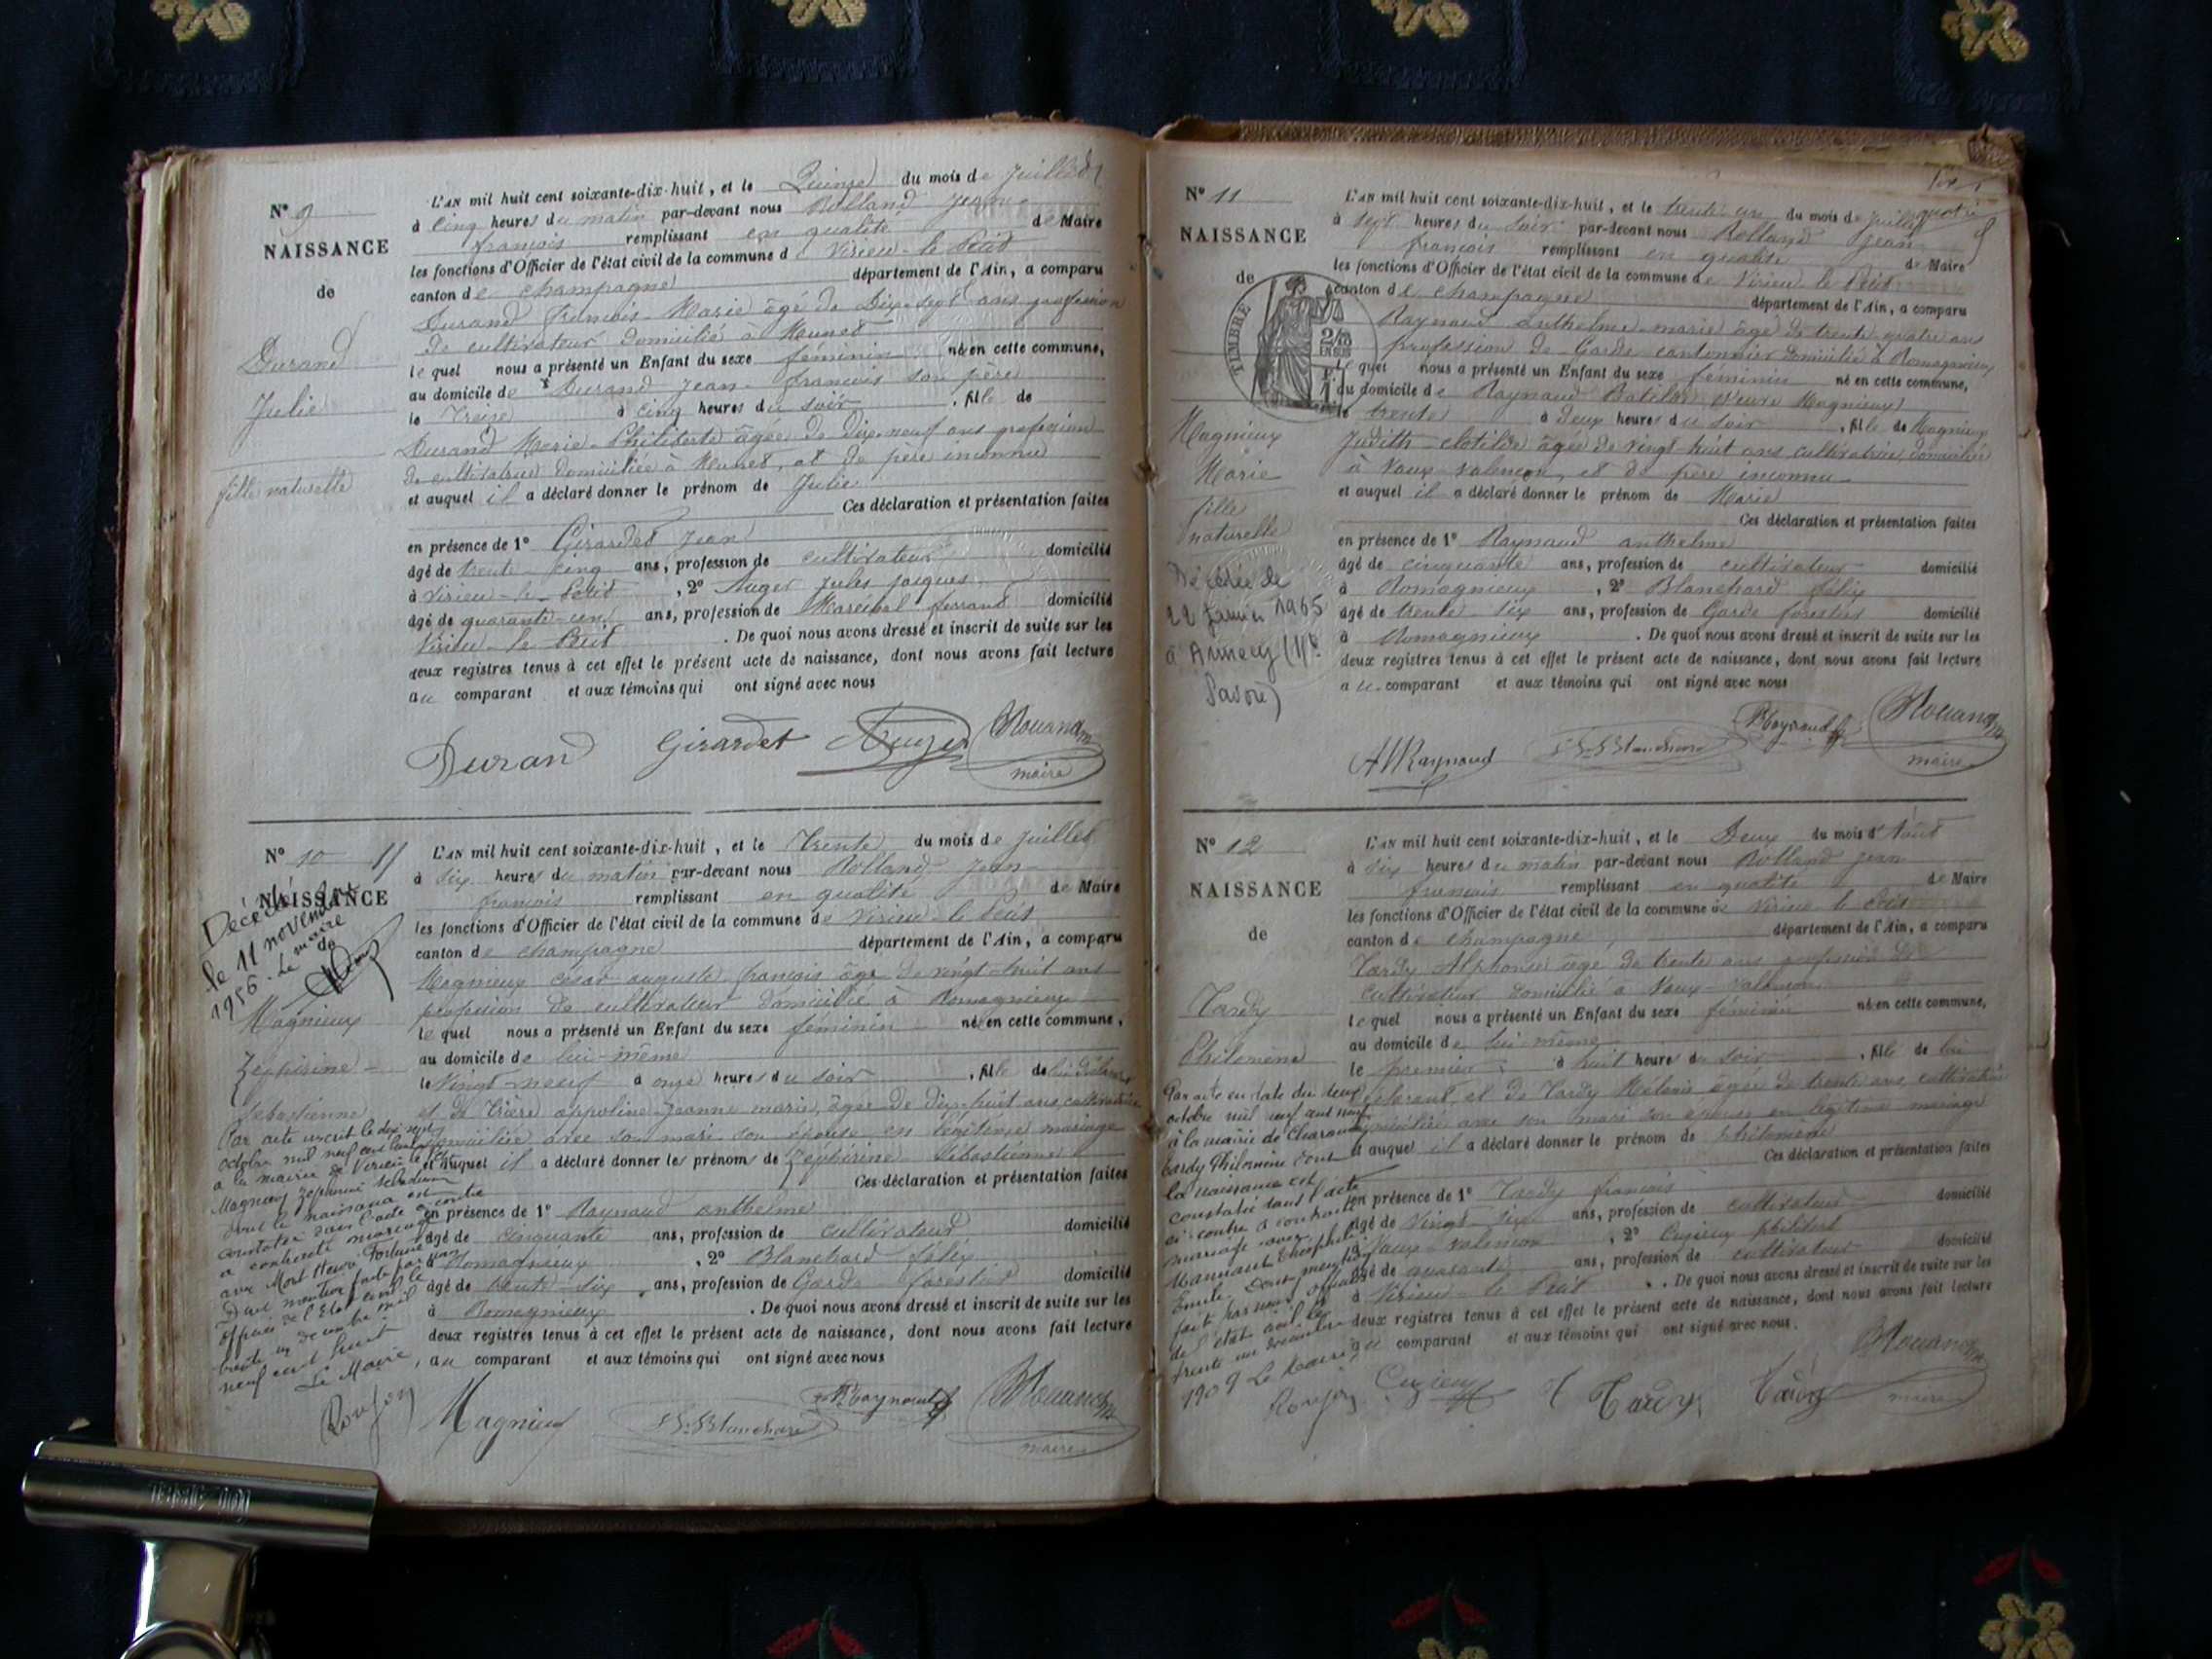 N° 9
NAISSANCE
de
Durand
Julie
fille naturelle
L'AN mil huit cent soixante-dix-huit, et le Quinze du mois de juillet
à cinq heures du matin par-devant nous Rolland Jean
françois remplissant en qualité de Maire
les fonctions d'Officier de l'état civil de la commune de Virieu-le-Petit
canton de champagne département de l'Ain, a comparu
Durand francois-Marie âgé de Dix-sept ans profession
de cultivateur domicilié à Munet
lequel nous a présenté un Enfant du sexe féminin né en cette commune,
au domicile de Durand Jean-francois son père
le Treize à cinq heures du soir, fille de
Durand Marie-Philiberte âgée de dix-neuf ans profession
de cultivateur domiciliée à Munet, et de père inconnu
et auquel il a déclaré donner le prénom de Julie
Ces déclaration et présentation faites
en présence de 1° Girardet Jean
âgé de trente-cinq ans, profession de cultivateur domicilié
à Virieu-le-Petit, 2° Auger Jules jacques
âgé de quarante-un ans, profession de Maréchal ferrant domicilié
Virieu-le Petit. De quoi nous avons dressé et inscrit de suite sur les
deux registres tenus à cet effet le présent acte de naissance, dont nous avons fait lecture
au comparant et aux témoins qui ont signé avec nous
Durand Girardet Auger
maire
N° 10
NAISSANCE
Décédée
le 11 novembre
1956. Le maire
Magnieux
Zephirine
Sebastienne
Par acte inscrit le dix sept
octobre mil neuf cent
à la mairie de Virieu le Petit
Magnieux Zephirine Sebastienne
dont la naissance est
constatée dans l'acte ci contre
a contracté mariage
avec Mort Henri Fortuné
Dont mention faite par
officier de l'Etat civil le
trente un décembre mil
neuf cent huit
Le Maire
Roujon
L'AN mil huit cent soixante-dix-huit, et le Trente du mois de juillet
à six heures du matin par-devant nous Rolland Jean
françois remplissant en qualité de Maire
les fonctions d'Officier de l'état civil de la commune de Virieu-le Petit
canton de champagne département de l'Ain, a comparu
Magnieux césar auguste françois âgé de vingt-huit ans
profession de cultivateur domicilié à Romagnieux
lequel nous a présenté un Enfant du sexe féminin né en cette commune,
au domicile de lui-même
le Vingt-neuf à onze heures du soir, fille de lui déclarant
et de Trière appoline Jeanne marie, âgée de dix-huit ans cultivatrice
domiciliée avec son mari son épouse en légitime mariage
et auquel il a déclaré donner les prénoms de Zephirine Sébastienne
Ces déclaration et présentation faites
en présence de 1° Raynaud anthelme
âgé de cinquante ans, profession de cultivateur domicilié
à Romagnieux, 2° Blanchard félix
âgé de trente-six ans, profession de Garde forestier domicilié
à Romagnieux. De quoi nous avons dressé et inscrit de suite sur les
deux registres tenus à cet effet le présent acte de naissance, dont nous avons fait lecture
au comparant et aux témoins qui ont signé avec nous
Magnieux Blanchard Raynaud
maire
N° 11
NAISSANCE
de
TIMBRE
Magnieux
Marie
fille
naturelle
Décédée le
22 Janvier 1965
à Annecy (Hte
Savoie)
L'AN mil huit cent soixante-dix-huit, et le trente un du mois de juillet
à sept heures du soir par-devant nous Rolland Jean
françois remplissant en qualité de Maire
les fonctions d'Officier de l'état civil de la commune de Virieu le Petit
canton de champagne département de l'Ain, a comparu
Raynaud anthelme-marie âgé de trente quatre ans
profession de Garde cantonnier domicilié à Romagnieux
lequel nous a présenté un Enfant du sexe féminin né en cette commune,
du domicile de Raynaud Batilde, veuve Magnieux
le trente à deux heures du soir, fille de Magnieux
Judith-clotilde âgée de vingt huit ans cultivatrice domiciliée
à Vaux-valencon, et de père inconnu
et auquel il a déclaré donner le prénom de Marie
Ces déclaration et présentation faites
en présence de 1° Raynaud anthelme
âgé de cinquante ans, profession de cultivateur domicilié
à Romagnieux, 2° Blanchard félix
âgé de trente-six ans, profession de Garde forestier domicilié
à Romagnieux. De quoi nous avons dressé et inscrit de suite sur les
deux registres tenus à cet effet le présent acte de naissance, dont nous avons fait lecture
au comparant et aux témoins qui ont signé avec nous
AM Raynaud Blanchard Raynaud
maire
N° 12
NAISSANCE
de
Tardy
Philomène
Par acte en date du deux
octobre mil neuf cent neuf
à la mairie de
Tardy Philomène dont
la naissance est
constatée dans l'acte
ci contre a contracté
mariage avec
Mannant Théophile
Emile. Dont mention
fait par nous, officier
de l'état civil le
trente un décembre
1909 Le Maire
Roujon
L'AN mil huit cent soixante-dix-huit, et le Deux du mois d'Août
à six heures du matin par-devant nous Rolland Jean
françois remplissant en qualité de Maire
les fonctions d'Officier de l'état civil de la commune de Virieu-le Petit
canton de champagne département de l'Ain, a comparu
Tardy Alphonse âgé de trente ans profession de
cultivateur domicilié à Vaux-valencon
lequel nous a présenté un Enfant du sexe féminin né en cette commune,
au domicile de lui-même
le premier à huit heures du soir, fille de lui
déclarant et de Tardy Mélanie âgée de trente ans cultivatrice
domiciliée avec son mari son épouse en légitime mariage
et auquel il a déclaré donner le prénom de Philomène
Ces déclaration et présentation faites
en présence de 1° Tardy françois
âgé de vingt-six ans, profession de cultivateur domicilié
à Vaux-valencon, 2° Cuzieux philibert
âgé de quarante ans, profession de cultivateur domicilié
à Virieu-le Petit. De quoi nous avons dressé et inscrit de suite sur les
deux registres tenus à cet effet le présent acte de naissance, dont nous avons fait lecture
au comparant et aux témoins qui ont signé avec nous.
Cuzieux Tardy Tardy
maire